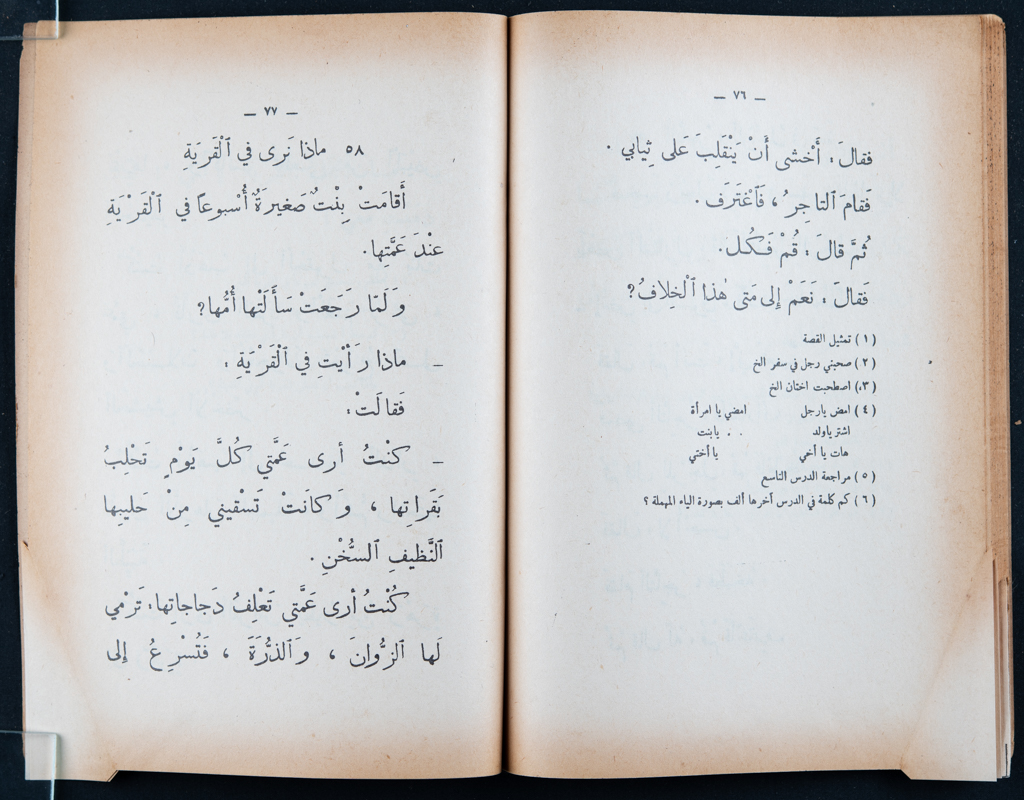 — ٧٦ —
فقالَ : أَخْشى أَنْ يَنْقَلِبَ عَلى ثِيابي .
فَقامَ ٱلتاجِرُ ، فَٱغْتَرَف .
ثُمَّ قالَ : قُمْ فَكُل .
فَقالَ : نَعَمْ إِلى مَتى هٰذا ٱلْخِلافُ؟
(١) تمثيل القصة
(٢) صحبني رجل في سفر الخ
(٣) اصطحبت اختان الخ
(٤) امض يارجل امضي يا امرأة
اشتر ياولد . . يابنت
هات يا أخي يا أختي
(٥) مراجعة الدرس التاسع
(٦) كم كلمة في الدرس أخرها ألف بصورة الياء المهملة ؟
— ٧٧ —
٥٨ ماذا نَرى في ٱلْقَريَةِ
أَقامَتْ بِنْتٌ صَغيرَةٌ أُسْبوعاً في ٱلْقَرْيَةِ
عنْدَ عَمَّتِها.
وَلَمّا رَجَعَتْ سَأَلَتْها أُمُّها؟
— ماذا رَأَيْتِ في ٱلْقَرْيَةِ :
فَقالَتْ:
— كنْتُ أَرى عَمَّتي كُلَّ يَوْمٍ تَحْلِبُ
بَقَراتِها ، وَكانَتْ تَسْقيني مِنْ حَليبِها
ٱلنَّظيفِ ٱلسُّخْنِ .
كُنْتُ أَرى عَمَّتي تَعْلِفُ دَجاجاتِها: تَرْمي
لَها ٱلزُّوانَ ، وَٱلذُّرَةَ ، فَتُسْرِعُ إِلى